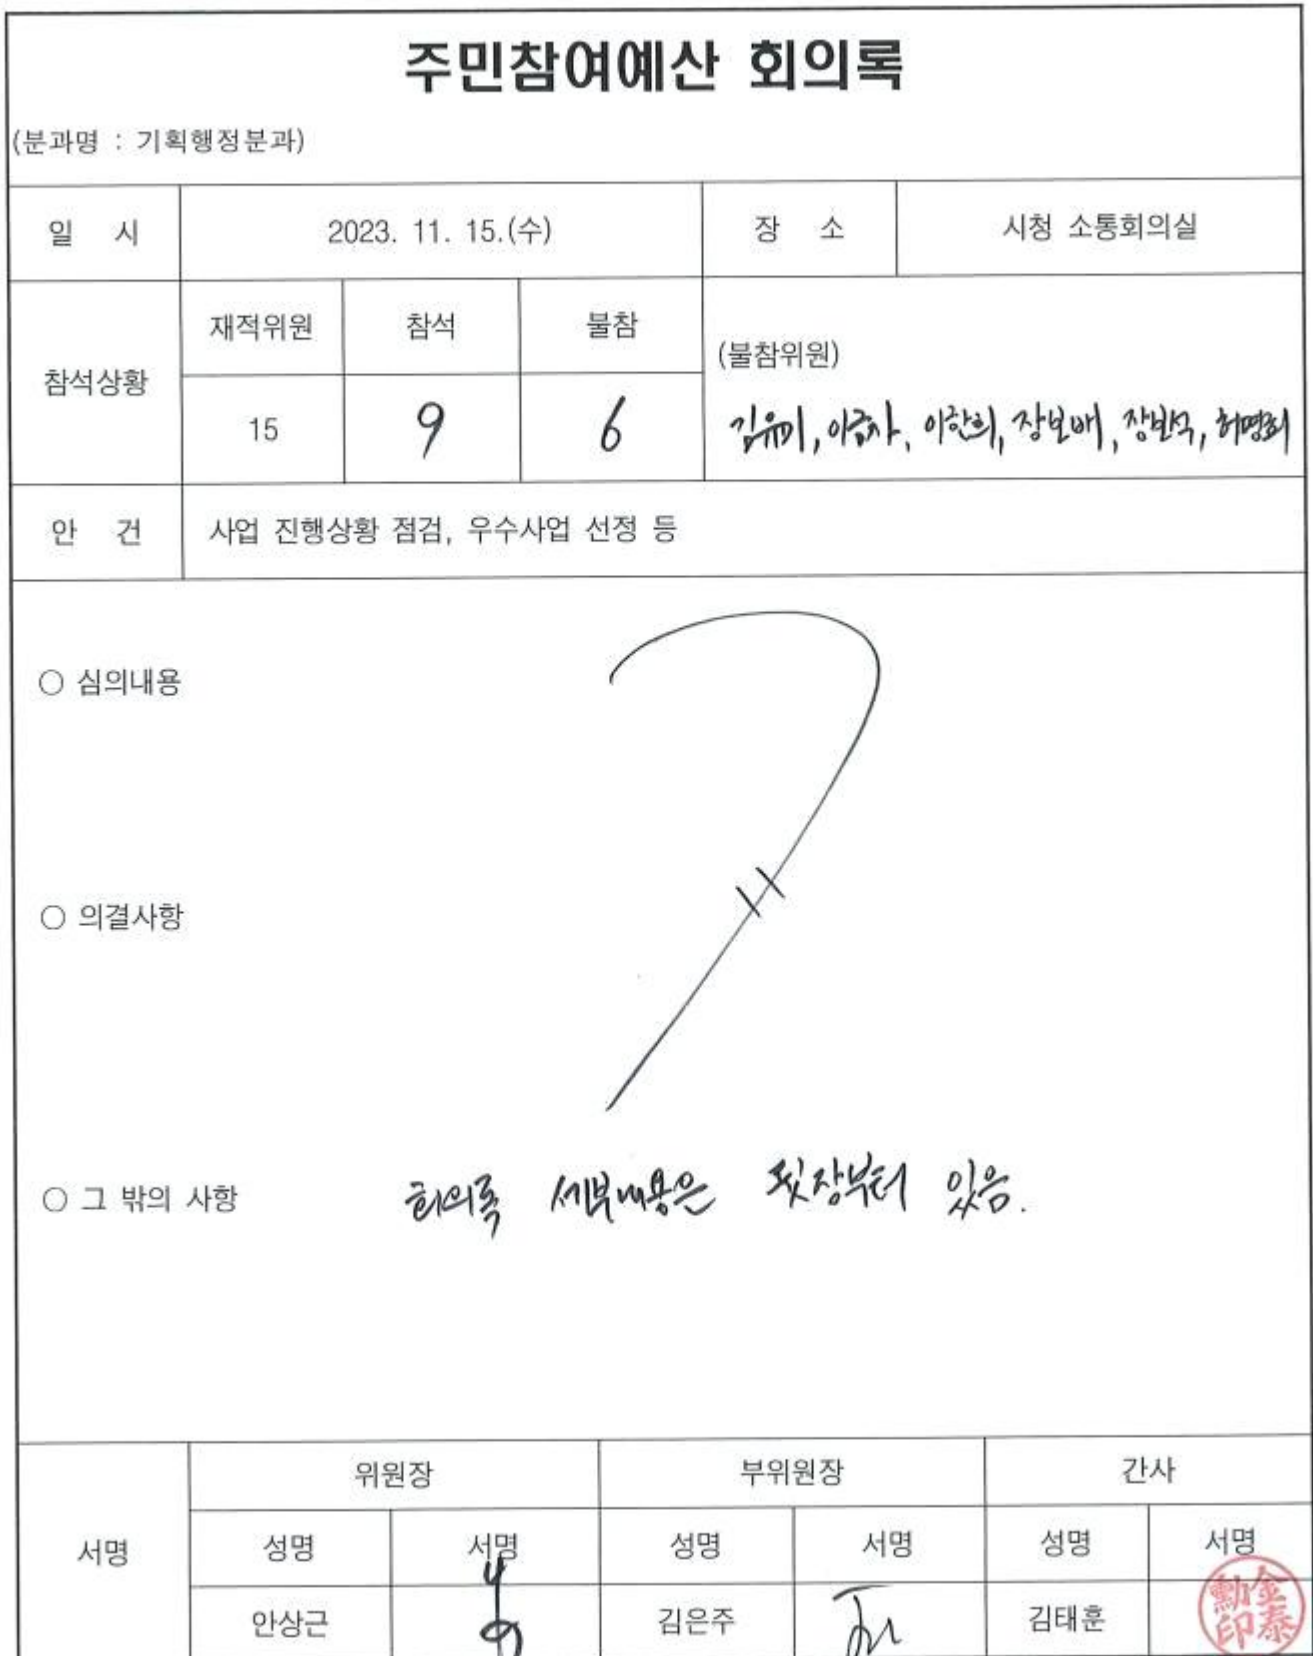 주민참여예산 회의록
(분과명 : 기획행정분과)
일 시 2023. 11. 15.(수) 장 소 시청 소통회의실
참석상황 재적위원 참석 불참 (불참위원)
15 9 6 김유미, 이금자, 이한희, 장보배, 장반석, 허명회
안 건 사업 진행상황 점검, 우수사업 선정 등
○ 심의내용
○ 의결사항
○ 그 밖의 사항 회의록 세부내용은 뒷장부터 있음.
서명 위원장 부위원장 간사
성명 서명 성명 서명 성명 서명
안상근 김은주 김태훈 金泰勳印